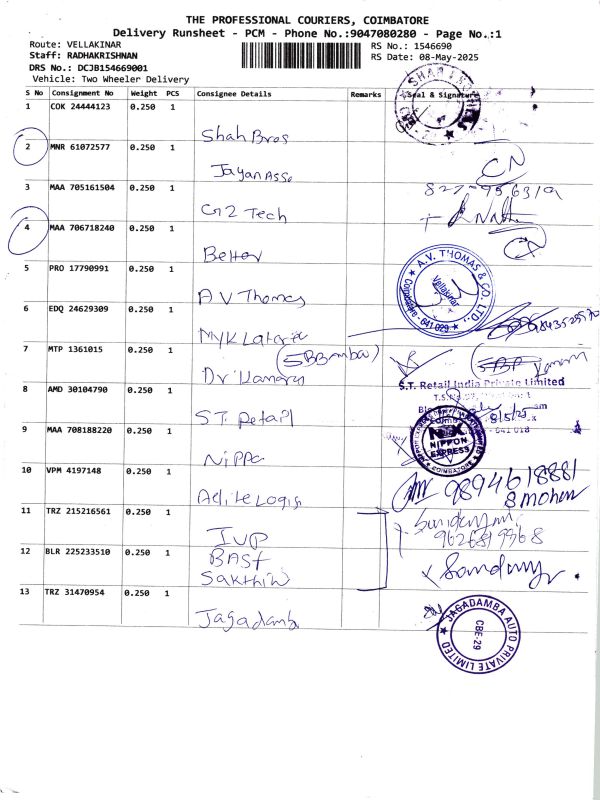 THE PROFESSIONAL COURIERS, COIMBATORE
Delivery Runsheet - PCM - Phone No.:9047080280 - Page No.:1
Route: VELLAKINAR
RS No.: 1546690
Staff: RADHAKRISHNAN
RS Date: 08-May-2025
DRS No.: DCJB154669001
Vehicle: Two Wheeler Delivery
S No Consignment No Weight PCS Consignee Details Remarks Seal & Signature
1 COK 24444123 0.250 1
Shah Bros
2 MNR 61072577 0.250 1
Jayan Asso
CN
3 MAA 705161504 0.250 1
G2 Tech
4 MAA 706718240 0.250 1
CN
5 PRO 17790991 0.250 1
A.V. THOMAS & CO. LTD.
Vellakinar
Coimbatore - 641 029
A V Thomas
6 EDQ 24629309 0.250 1
MYK
7 MTP 1361015 0.250 1
Dr
S.T. Retail India Private Limited
8 AMD 30104790 0.250 1
S T Retail
9 MAA 708188220 0.250 1
NX
NIPPON
EXPRESS
COIMBATORE
Nippo
10 VPM 4197148 0.250 1
9894618881
Aelite Logis
11 TRZ 215216561 0.250 1
IVP
12 BLR 225233510 0.250 1
BASF
Sakthi
13 TRZ 31470954 0.250 1
Jagadamba
JAGADAMBA AUTO PRIVATE LIMITED
CBE-29